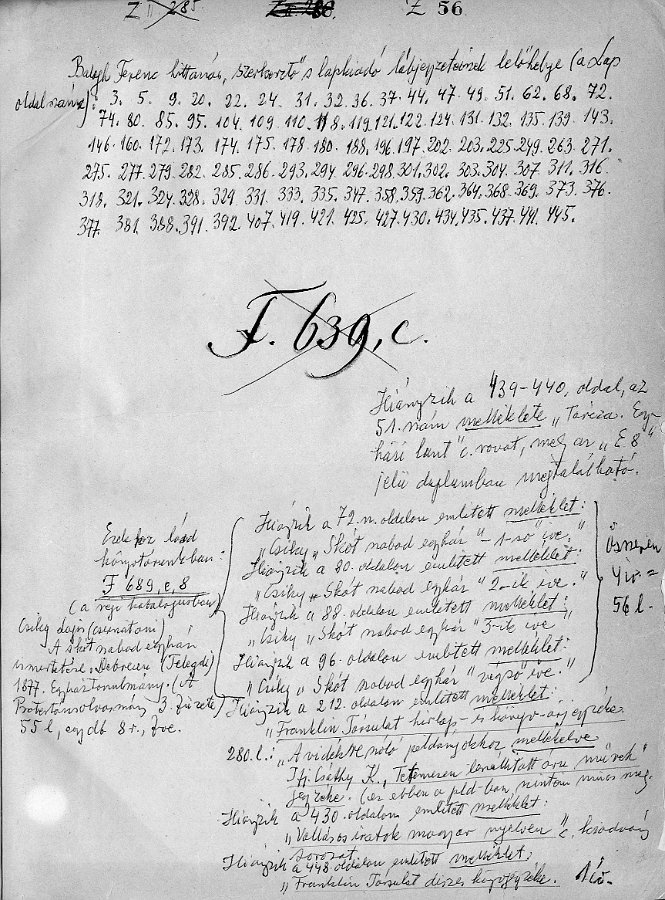 Z 56
Balogh Ferenc hittanár, szerkesztő s lapkiadó lábjegyzeteinek lelőhelye (a Lap
oldalszáma): 3. 5. 9. 20. 22. 24. 31. 32. 36. 37. 44. 47. 49. 51. 62. 68. 72.
74. 80. 85. 95. 104. 109. 110. 118. 119. 121. 122. 124. 131. 132. 135. 139. 143.
146. 160. 172. 173. 174. 175. 178. 180. 188. 196. 197. 202. 203. 225. 249. 263. 271.
275. 277. 279. 282. 285. 286. 293. 294. 296. 298. 301. 302. 303. 304. 307. 311. 316.
318. 321. 324. 328. 329. 331. 333. 335. 347. 358. 359. 362. 364. 368. 369. 373. 376.
377. 381. 388. 391. 392. 407. 419. 421. 425. 427. 430. 434. 435. 437. 441. 445.
F. 639, c.
Hiányzik a 439-440, oldal, az
51. szám melléklete „Tárcza. Egy-
házi lant" c. rovat, meg az „E 8"
jelű duplumban megtalálható.
Ezekhez lásd
könyvtárunkban:
F. 689, e, 8
(a régi katalógusban)
Csiky Lajos (
A skót szabad egyház
ismertetése. Debrecen (Telegdi)
1877. Egyháztudomány. (A
3. füzete)
55 l, egy db 8 r., fve.
Hiányzik a 72. n. oldalon említett melléklet:
„Csiky „Skót szabad egyház" 1-ső íve."
Hiányzik a 80. oldalon említett melléklet:
„Csiky „Skót szabad egyház" 2-ik íve."
Hiányzik a 88. oldalon említett melléklet:
„Csiky „Skót szabad egyház" 3-ik íve"
Hiányzik a 96. oldalon említett melléklet:
„Csiky „Skót szabad egyház" végső íve."
összesen
4 ív =
56 l.
Hiányzik a 212. oldalon említett melléklet:
„Franklin Társulat hirlap- és könyv-árjegyzéke.
280. l.: „A vidékre szóló példányokhoz mellékelve
Ifj. Csáthy K., Tetemesen leszállított áru művek"
jegyzéke. (ez ebben a pld-ban, nincs meg.
Hiányzik a 430. oldalon említett melléklet:
„Vallásos iratok magyar nyelven" c. kiadvány
sorozat.
Hiányzik a 448. oldalon említett melléklet:
„Franklin Társulat díszes könyvjegyzéke. 1 ív.